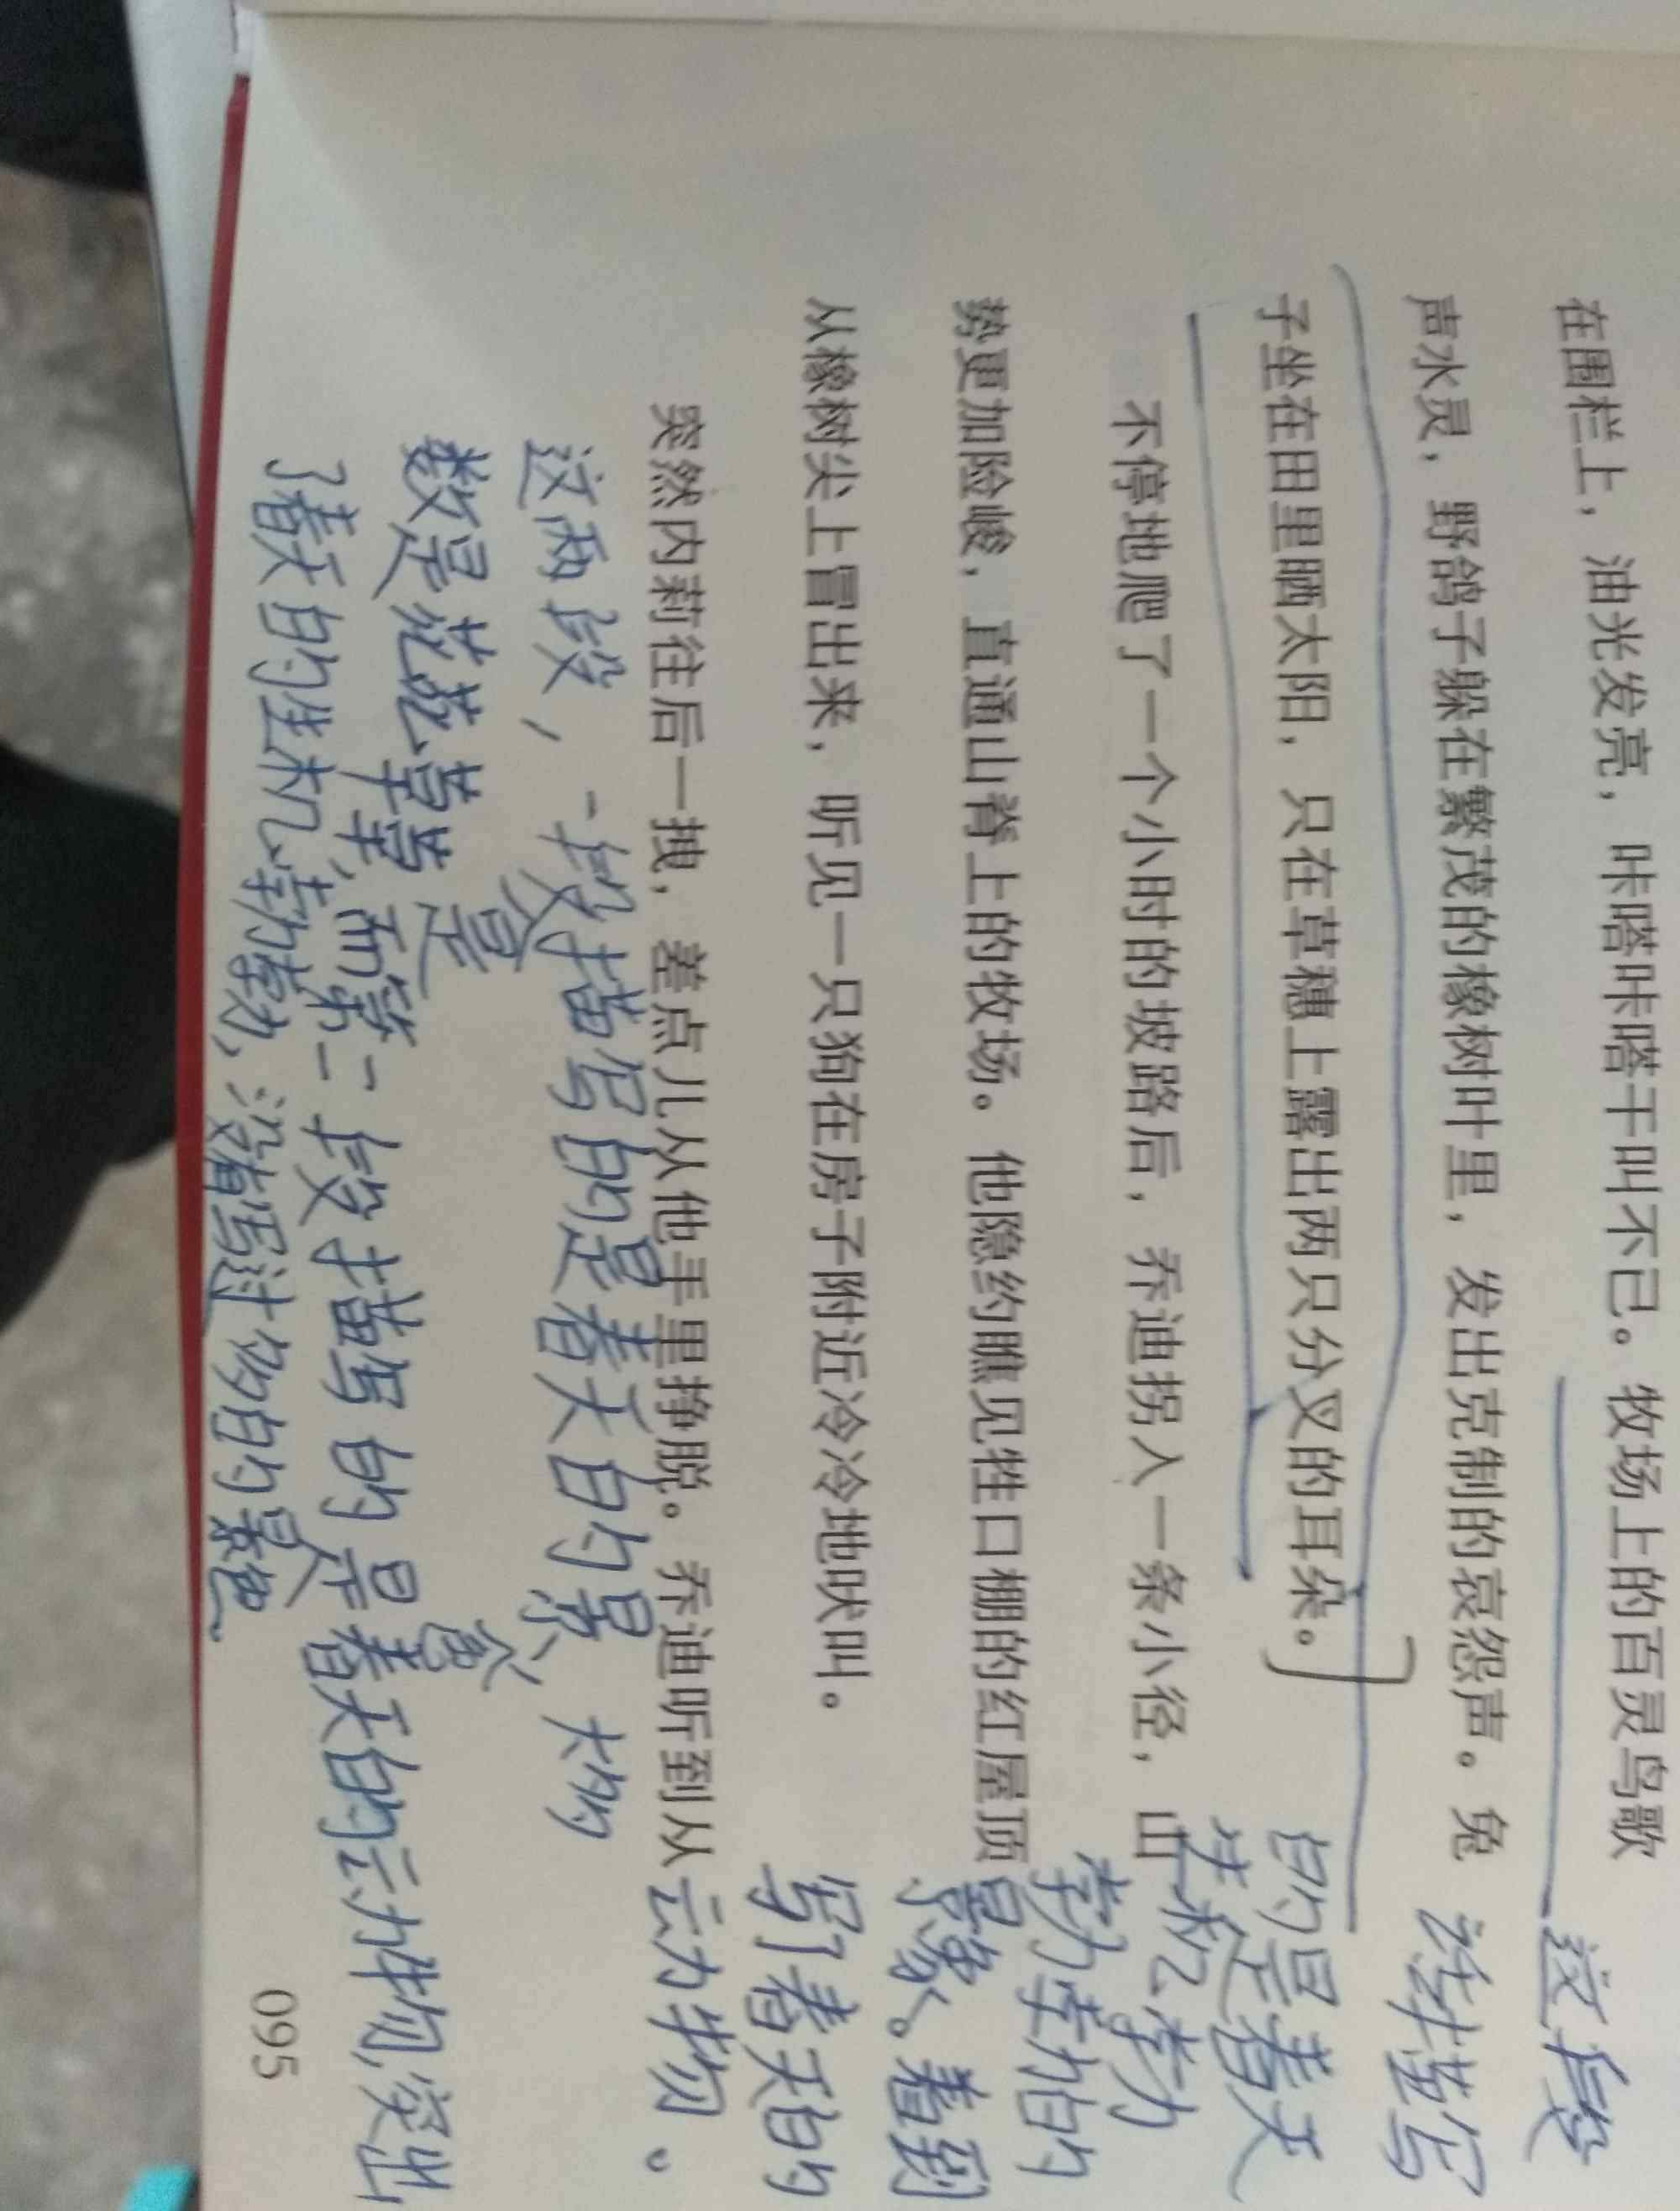 在围栏上，油光发亮，咔嗒咔嗒干叫不已。牧场上的百灵鸟歌
声水灵，野鸽子躲在繁茂的橡树叶里，发出克制的哀怨声。兔
子坐在田里晒太阳，只在草穗上露出两只分叉的耳朵。
不停地爬了一个小时的坡路后，乔迪拐入一条小径，山
势更加险峻，直通山脊上的牧场。他隐约瞧见牲口棚的红屋顶
从橡树尖上冒出来，听见一只狗在房子附近冷冷地吠叫。
突然内莉往后一拽，差点儿从他手里挣脱。乔迪听到从
这段
描写
的是春天
生机
的
景象。着
写了春天的
动物。
这两段，一段描写的是春天的景，大多
数是花草，是
而第二段描写的是春天的动物，突出
了春天的生机
的景色
095